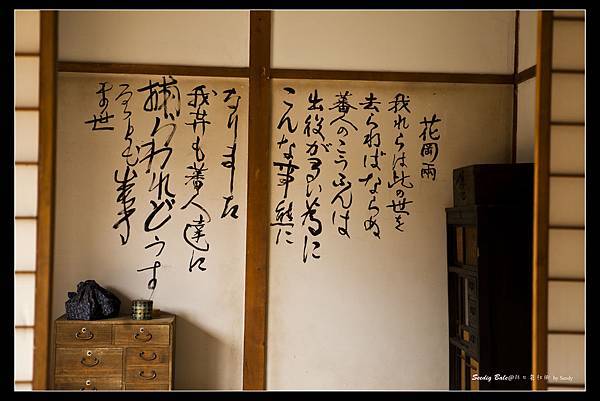 花岡兩
我れらは此の世を
去らねばならぬ
蕃人のこうふんは
出役が多い為に
こんな事態に
なりました
我等も蕃人達に
捕らわれどうす
ることも出来
ませ
Seediq Bale@林口霧社街 by Seedy